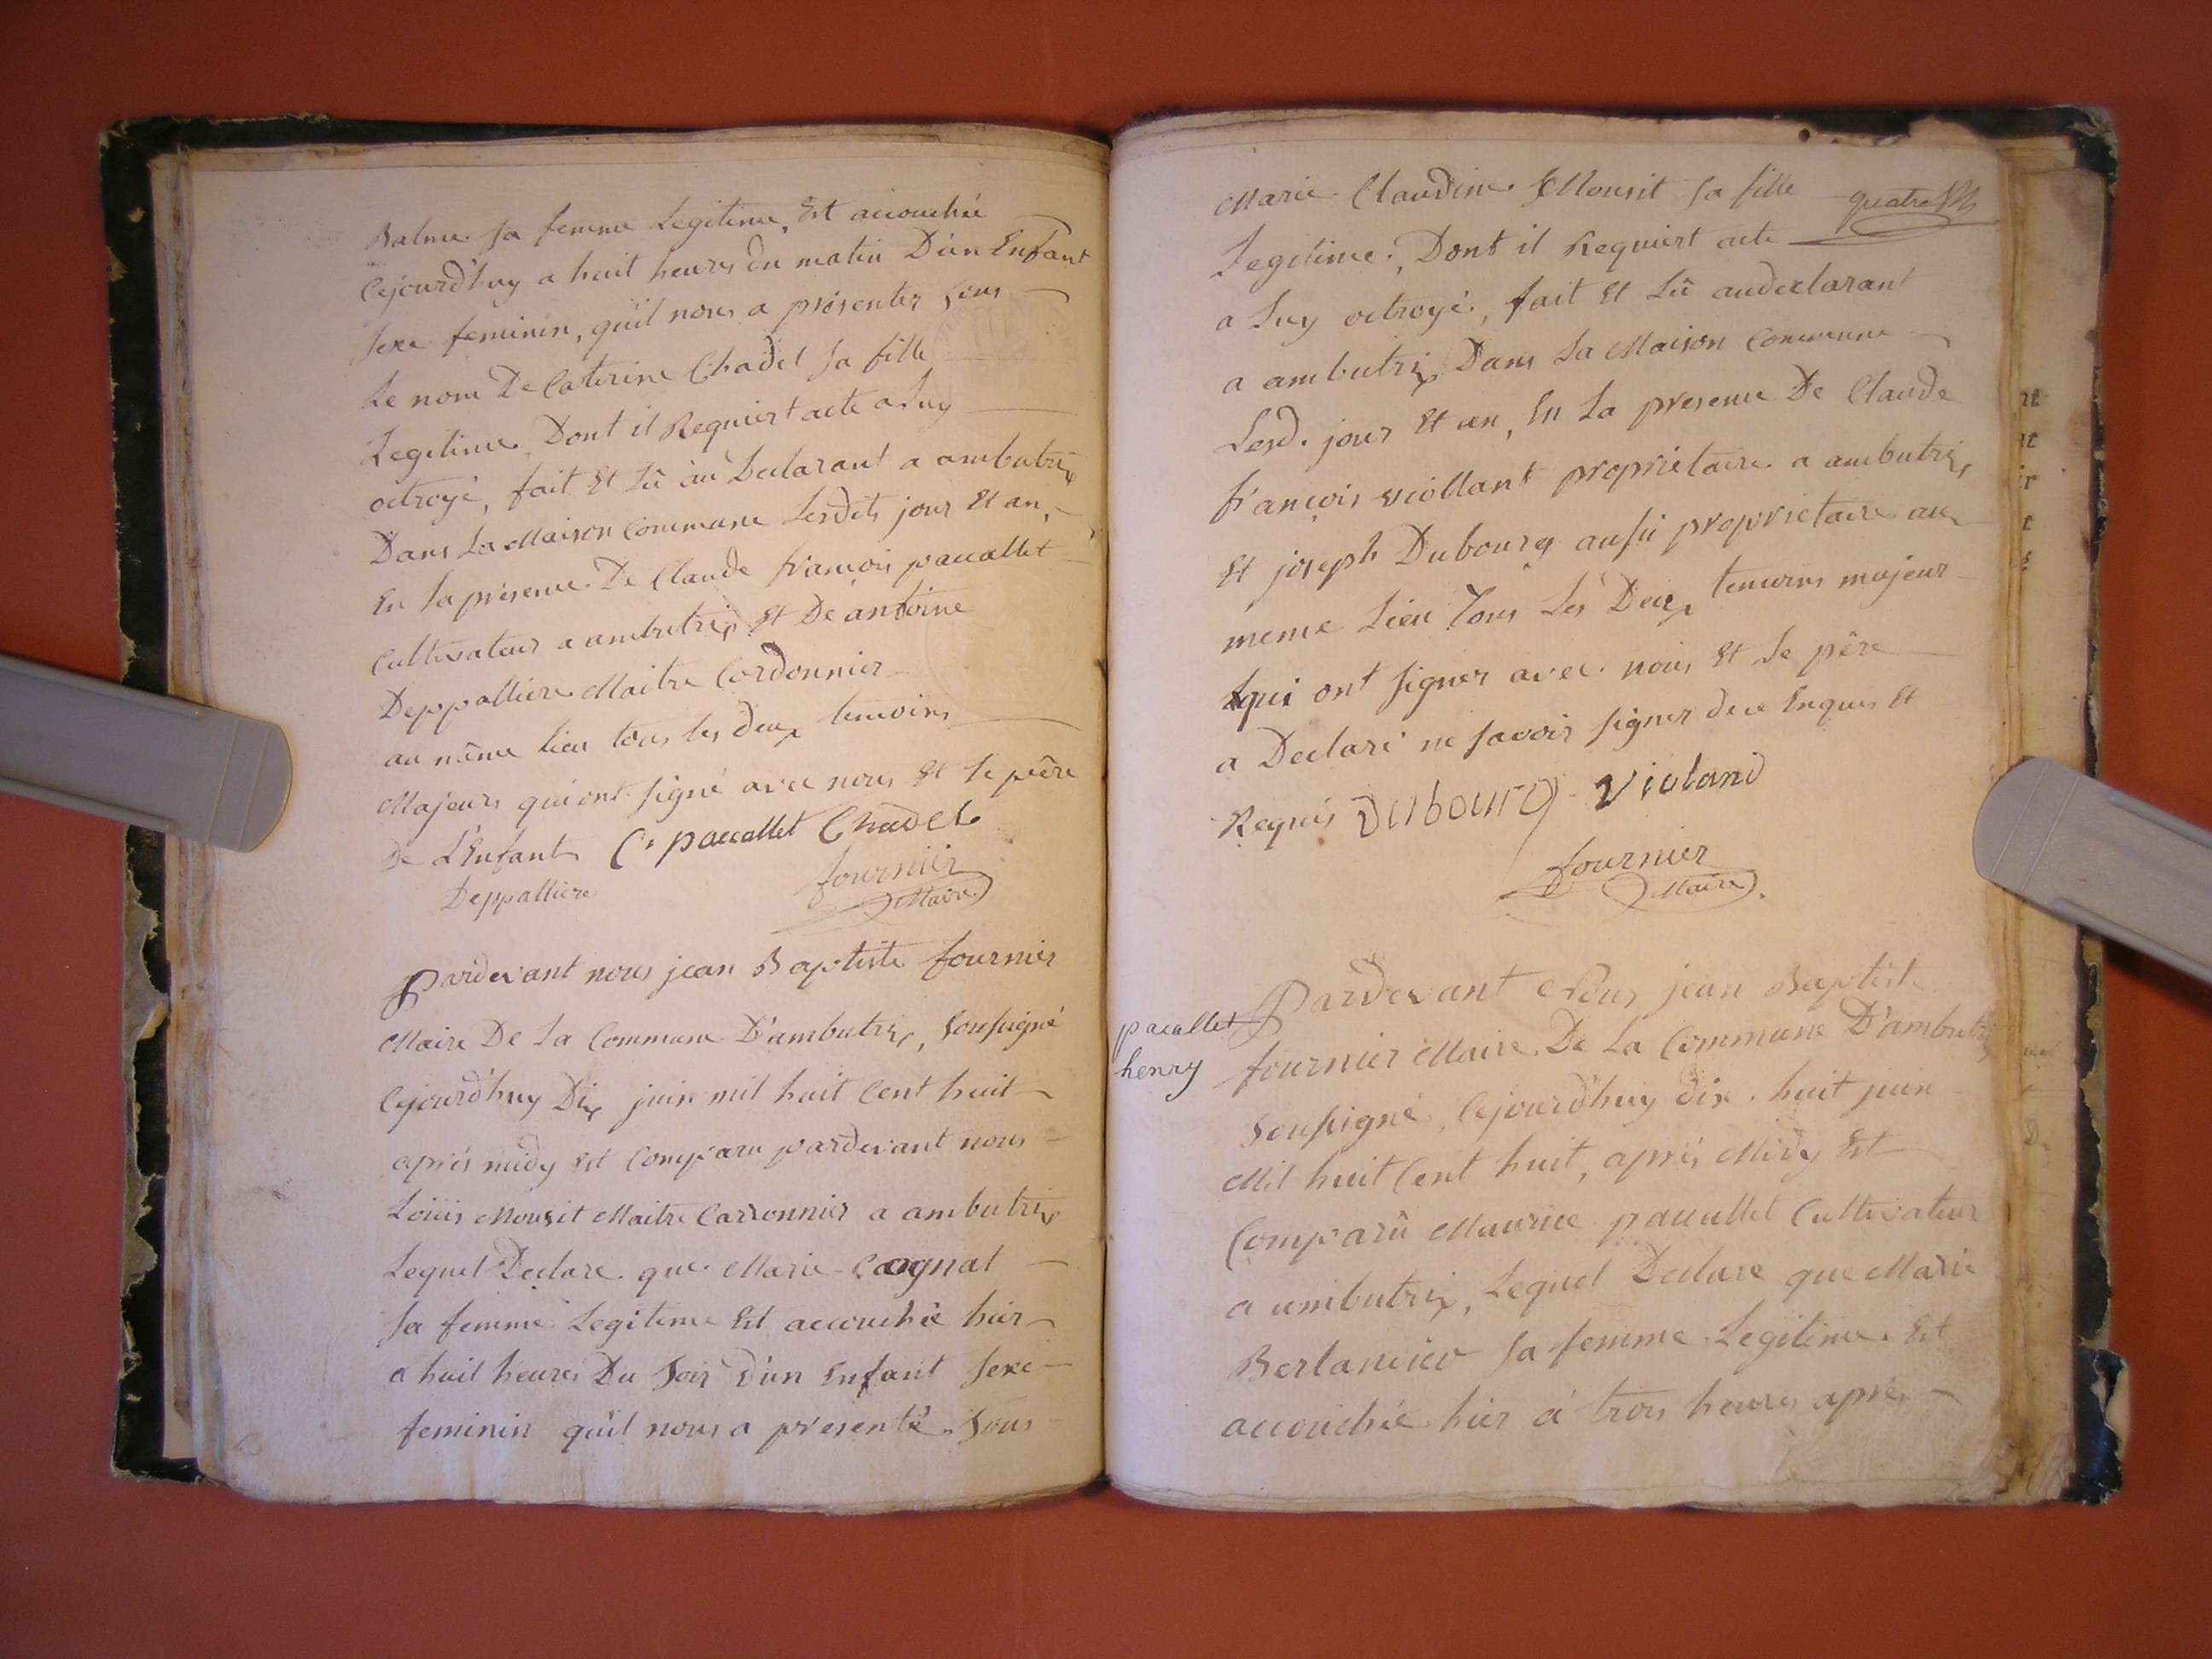 Balme sa femme Legitime, Est accouchée
Cejourd'huy a huit heures du matin D'un Enfant
sexe feminin, qu'il nous a présenter sous
Le nom De Caterine Chadel sa fille
Legitime, Dont il Requiert acte a Luy
octroyé, fait Et Lû au Declarant a ambutrix
Dans La Maison Commune Lesdits jour Et an,
En sa présence De Claude françois pacallet
Cultivateur a ambutrix Et De antoine
Deppalliere Maitre Cordonnier
au même Lieu tous les deux temoins
Majeurs qui ont signé avec nous Et le père
De L'Enfant C. pacallet Chadel
Deppalliere fournier
Maire
Pardevant nous jean Baptiste fournier
Maire De La Commune D'ambutrix, soussigné
Cejourd'huy Dix juin mil huit Cent huit
après midy Est Comparu pardevant nous
Loüis Mousit Maitre Carronnier a ambutrix
Lequel Declare que Marie Cagnat
sa femme Legitime Est accouchée hier
a huit heures Du Soir D'un Enfant sexe
feminin qu'il nous a presenté sous
Marie Claudine Mousit sa fille quatre
Legitime, Dont il Requiert acte
a Luy octroyé, fait Et Lû au declarant
a ambutrix Dans La Maison Commune
Lesd. jour Et an, En La presence De Claude
françois viollant propriétaire a ambutrix
Et joseph Dubourg aussi propriétaire au
meme Lieu Tous Les Deux temoins majeur
qui ont signer avec nous Et le père
a Declaré ne savoir signer de ce Enquis Et
Requis Dubourg Violand
fournier
Maire
pacallet
henry
Pardevant Nous jean Baptiste
fournier Maire De La Commune D'ambutrix
soussigné, Cejourd'huy dix huit juin
Mil huit Cent huit, après Midy Est
Comparû Maurice pacallet Cultivateur
a ambutrix, Lequel Declare que Marie
sa femme Legitime Est
accouchée hier à trois heures après